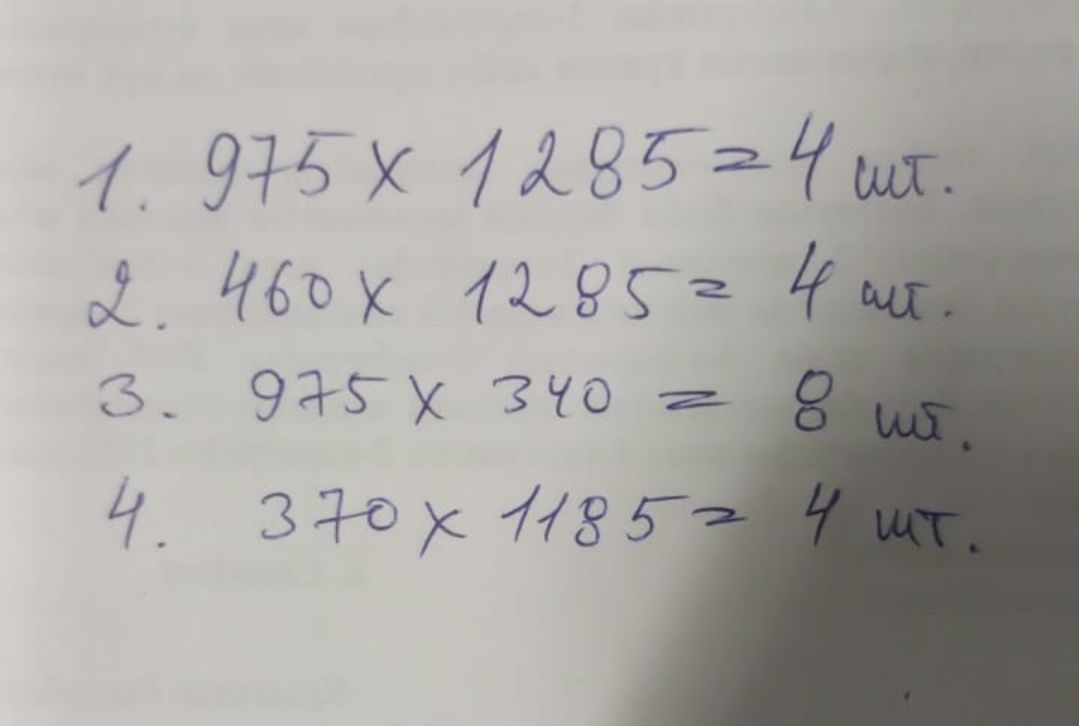 1. 975 x 1285 = 4 шт.
2. 460 x 1285 = 4 шт.
3. 975 x 340 = 8 шт.
4. 370 x 1185 = 4 шт.